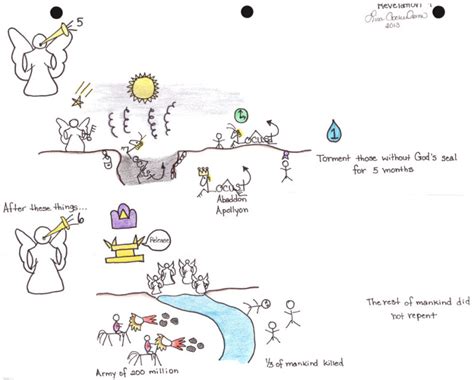 Revelation 9
2013
5
LOCUST
1
Torment those without God's seal
for 5 months
LOCUST
Abaddon
Apollyon
After these things...
6
Release
The rest of mankind did
not repent
1/3 of mankind killed
Army of 200 million